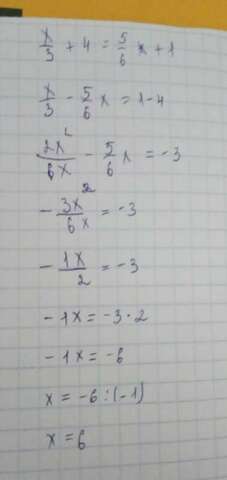 x/3 + 4 = 5/6 x + 1
x/3 - 5/6 x = 1 - 4
2x/6x - 5/6 x = -3
- 3x/6x = -3
- 1x/2 = -3
- 1x = -3 · 2
- 1x = -6
x = -6 : (-1)
x = 6